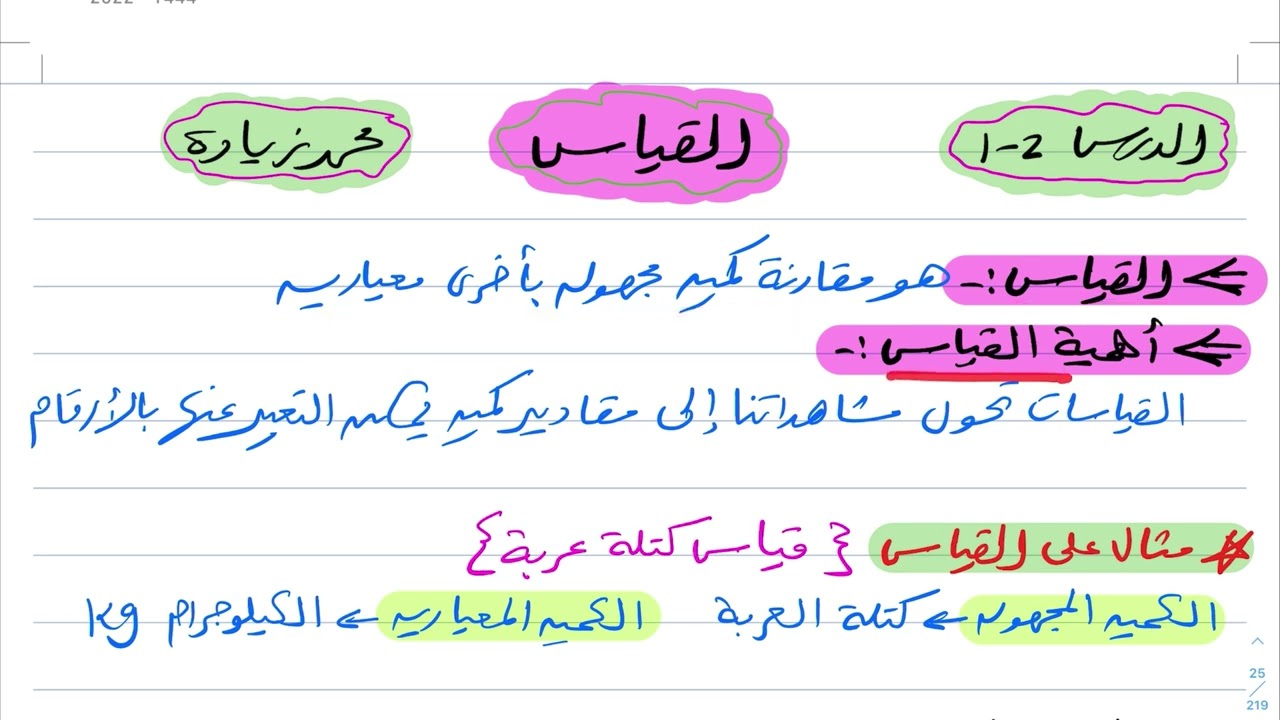 الدرس 2-1 القياس محمد زيادة
القياس :- هو مقارنة كميه مجهوله بأخرى معياريه
أهمية القياس :-
القياسات تحول مشاهداتنا إلى مقادير كميه يمكن التعبير عنها بالأرقام
# مثال على القياس { قياس كتلة عربة }
الكميه المجهوله ← كتلة العربة الكميه المعياريه ← الكيلوجرام kg
25
219